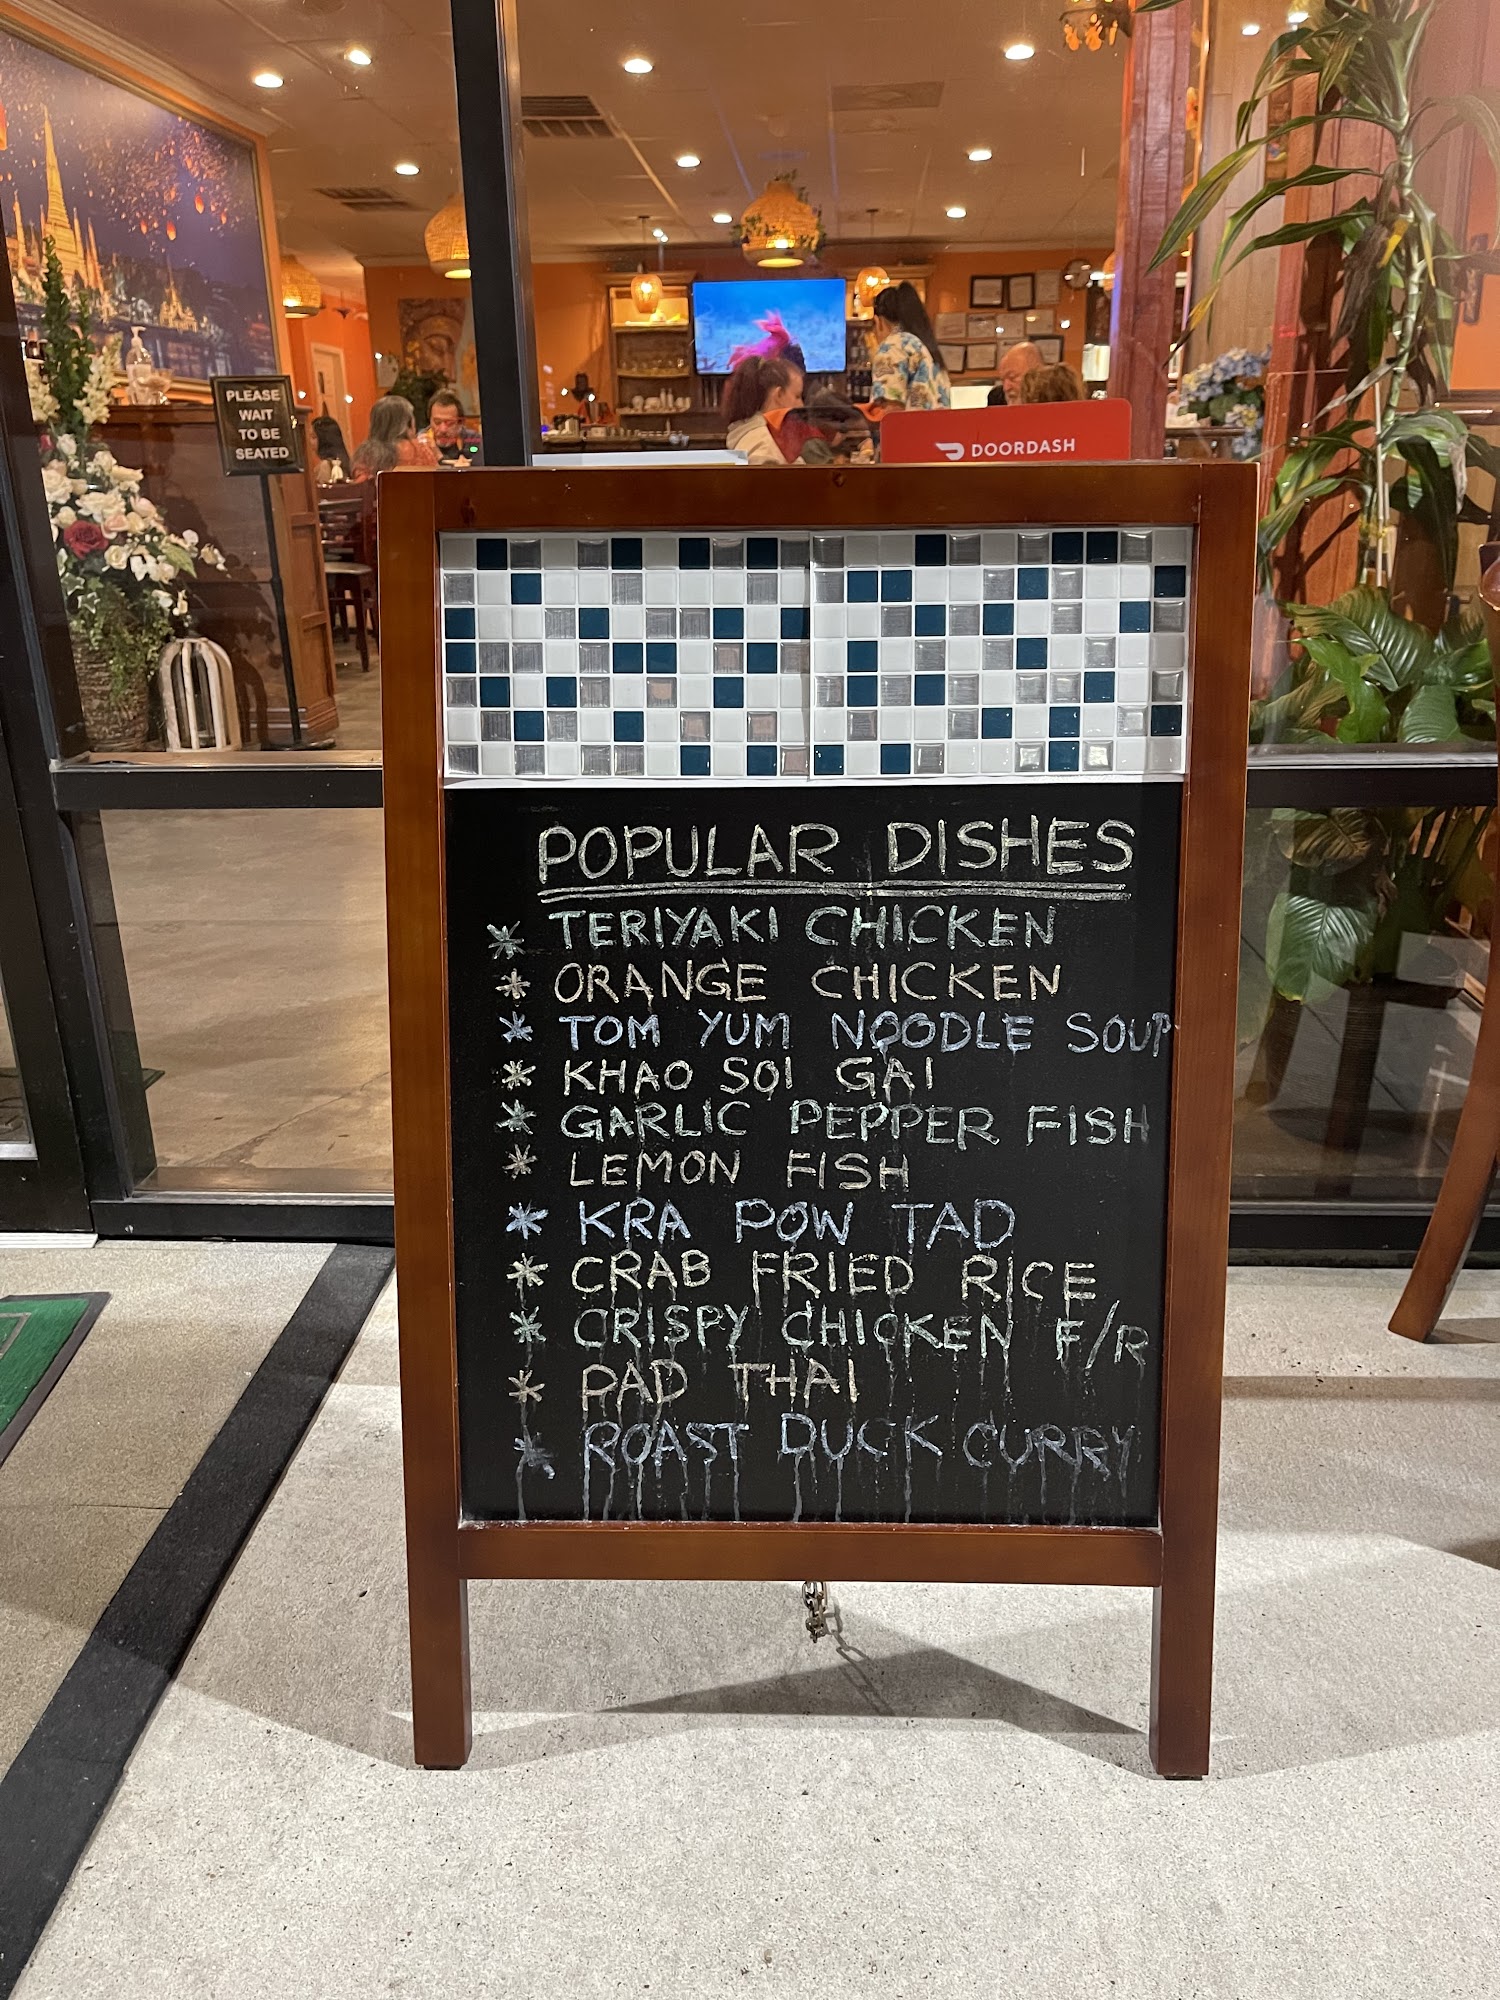 PLEASE
WAIT
TO BE
SEATED
DOORDASH
POPULAR DISHES
* TERIYAKI CHICKEN
* ORANGE CHICKEN
* TOM YUM NOODLE SOUP
* KHAO SOI GAI
* GARLIC PEPPER FISH
* LEMON FISH
* KRA POW TAD
* CRAB FRIED RICE
* CRISPY CHICKEN F/R
* PAD THAI
* ROAST DUCK CURRY